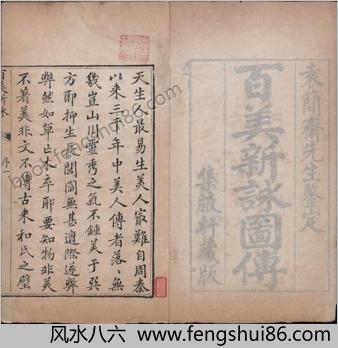 袁簡齋先生鑒定
百美新詠圖傳
集腋軒藏版
天生人最易生美人㝡難自周秦
以來三千年中美人傳者落〻無
幾豈山川靈秀之氣不鍾美于巽
方耶抑生長閨閤無甚遭際遂
然如草亡木卒耶要知物非美
不著美非文不傳古來和氏之璧
百美新詠 序 一
风水八六 www.fengshui86.com